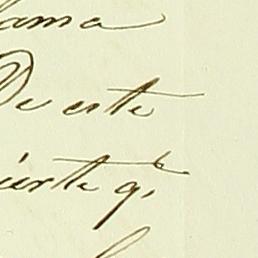 lama
De este
ierte q.e